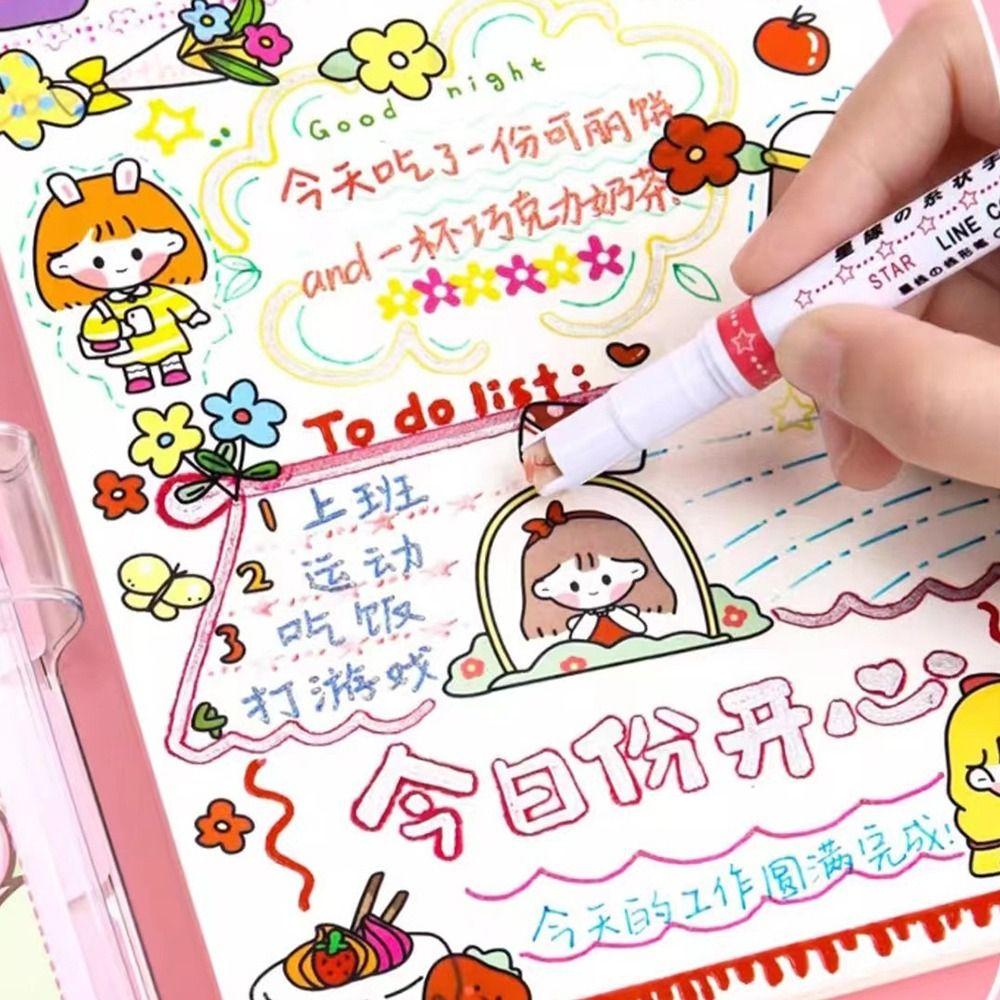 Good night
今天吃了一份可丽饼
and 一杯巧克力奶茶。
To do list:
1 上班
2 运动
3 吃饭
4 打游戏
今日份开心
今天的工作圆满完成!
STAR
LINE